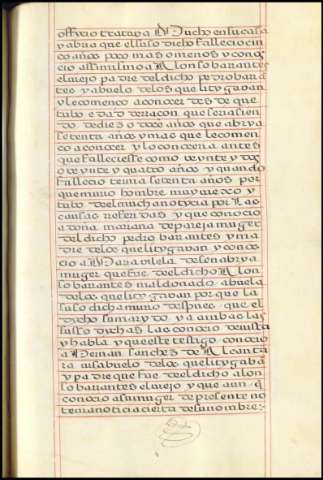 offiçio trataua Dº Ducho en su casa
y abra que el suso dicho falleçio çin
co años poco mas o menos y conoç
çio assimismo a Alonso barantes
el viejo padre del dicho pedro baran
tes y abuelo de los que litygavan
y le començo a conocer desde que
tubo edad de rraçon que seria sien
do de diez o doçe años que abra y
setenta años y mas que le comen
ço a conocer y lo conoçeria antes
que falleciesse como veynte y dos
o veynte y quatro años y quando
fallecio tenia setenta años por
que murio hombre muy viejo y
tubo del mucha notyçia por las
causas referidas y que conoçio
a doña mariana de pareja muger
del dicho pedro barantes y ma
dre de los que litygavan y conoç
çio a Mara vilela de sanabria
muger que fue del dicho Alon
so barantes maldonado abuela
de los que litygavan por que la
suso dicha murio despues que el
dycho su marydo y a ambas las
susso dychas las conoçio de vista
y habla y que este testigo conoçio
a Hernan sanches de Alcanta
ra visabuelo de los que litygaba
y padre que fue del dicho alon
so barantes el viejo y que aun q̃
conoçio a su muger de presente no
tenia notiçia çierta de su nombre:~